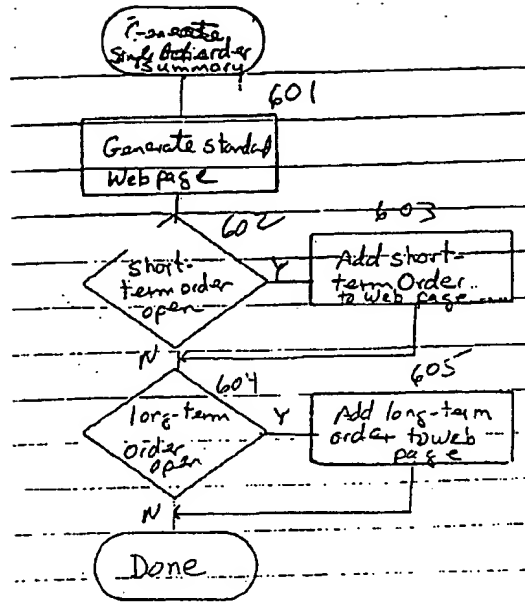 Generate
Single Action order
Summary
601
Generate standard
Web page
602
603
short-
term order
open
Y
Add short-
term Order
to web page
N
604
605
long-term
order
open
Y
Add long-term
order to web
page
N
Done